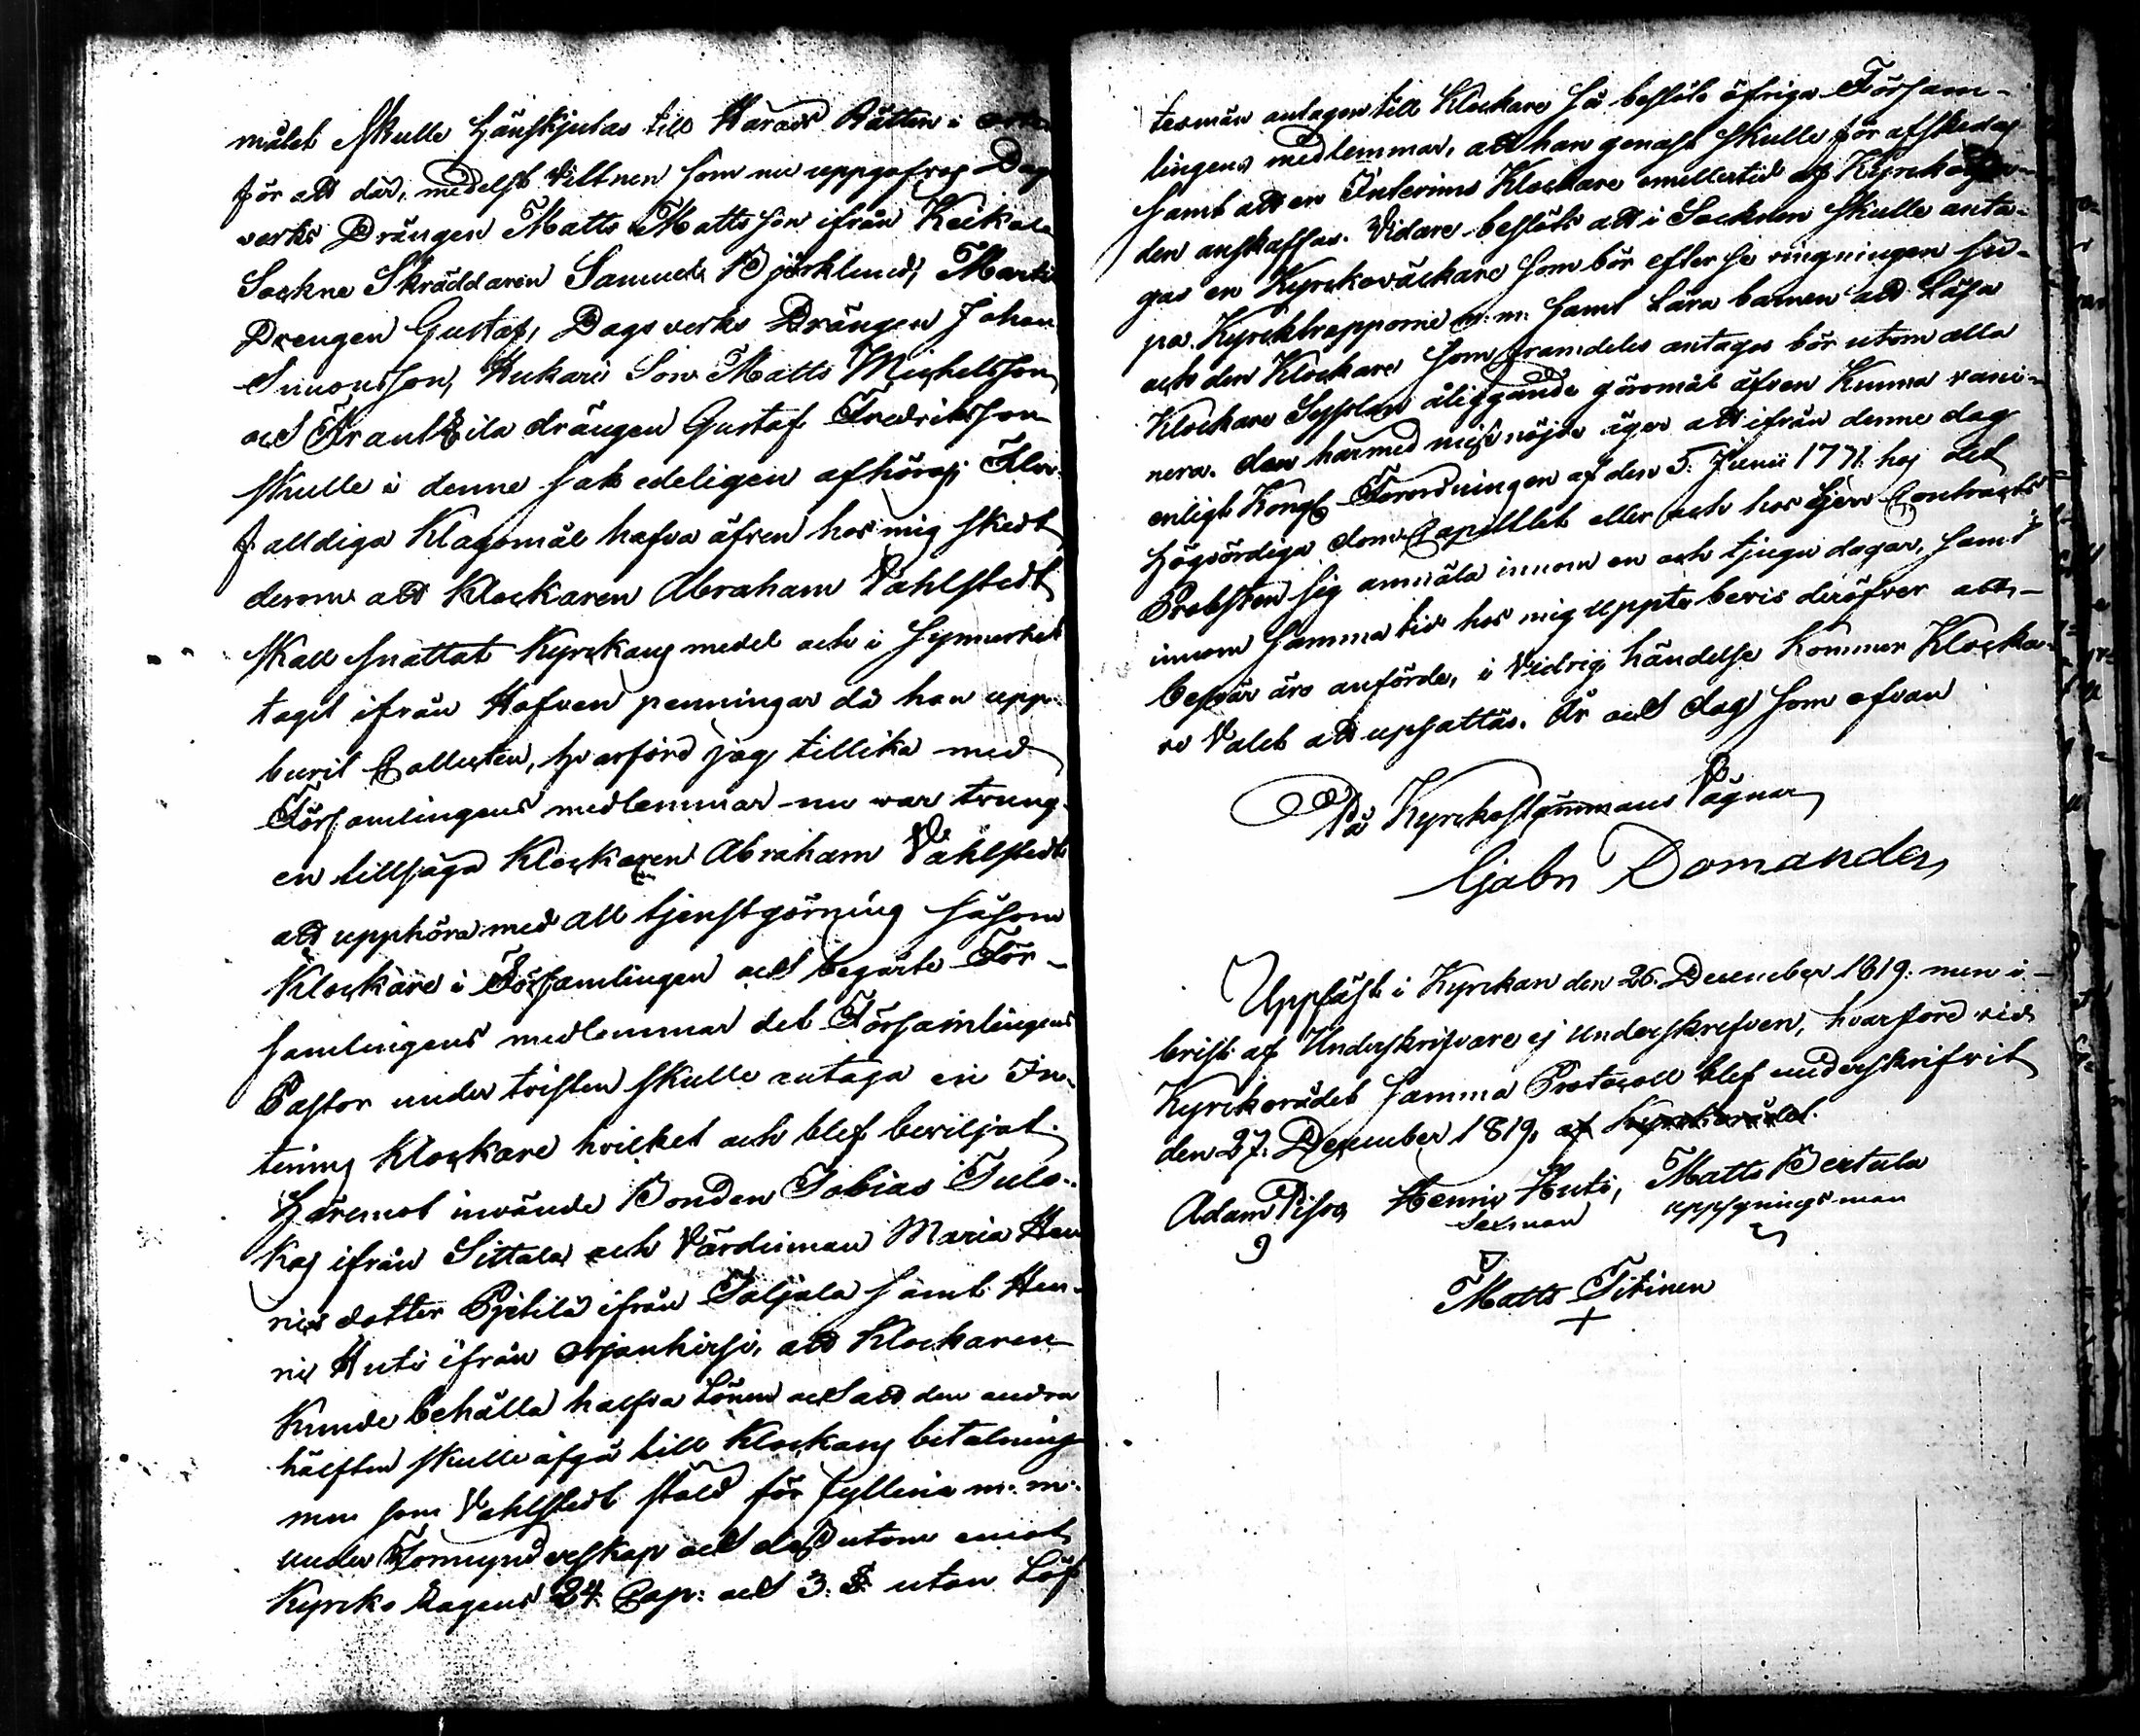 målet skulle hänskjutas till Härads Rätten i orten
för att där, medelst vittnen som nu uppgafves Dags
verks Drängen Matts Mattsson ifrån Keikala
Sockne Skräddaren Samuel Björklund, Martti
Drengen Gustaf, Dagsverks Drängen Johan
Simonsson, Kukari Son Matts Michelsson
och Frantsila drängen Gustaf Fredriksson
skulle i denne sak edeligen afhöras; Fler-
falldiga Klagomål hafva äfven hos mig skedt
derom att Klockaren Abraham Vahlstedt
skall snattat Kyrckans medel och i synnerhet
tagit ifrån Hafven penningar då han upp-
burit Collecten, hvarföre jag tillika med
Församlingens medlemmar nu var tvung-
en tillsäga Klockaren Abraham Vahlstedt
att upphöra med all tjenstgörning såsom
Klockare i Församlingen och begärte För-
samlingens medlemmar det Församlingens
Pastor under tvisten skulle antaga en In-
terims Klockare hvilket och blef beviljat.
Häremot invände Bonden Tobias Tulo-
kas ifrån Sittala och Värdinnan Maria Hen
rics dotter Pjetilä ifrån Saljala samt Hen-
ric Huti ifrån Arjanhirsi, att Klockaren
kunde behålla halfva Lönen och att den andra
hälften skulle afgå till Klockans betalning
men som Vahlstedt stådt för fylleri m. m.
under Förmynderskap och dessutom emot
Kyrcko Lagens 24. Cap: och 3. §. utan Löf
termin antagen till Klockare så beslöts öfriga Försam-
lingens medlemmar, att han genast skulle för afskedas
samt att en Interims Klockare emellertid af Kyrckoher-
den anskaffas. Vidare beslöts att i Socknen skulle anta-
gas en Kyrckoväckare som bör efterse ringningen su-
pa Kyrcktrapporne m:m: samt Lära barnen att Läsa
och den Klockare som framdeles antages bör utom alla
Klockare Sysslan åliggande göromål äfven Kunna vacci-
nera. den härmed missnöjde äger att ifrån denne dag
enligt Kongl Förordningen af den 5. Junii 1771. hos det
Högvördiga Dom Capittlet eller och hos Herr Contracts
Probsten sig anmäla innom en och tjugu dagar, samt
innom samma tid hos mig uppte bevis deröfver att
besvär äro anförde, i vidrig händelse kommer Klocka-
re Valet att upsättas. År och dag som ofvan
På Kyrckostämmans Vägnar
Gabr Domander
Uppläst i Kyrckan den 26. December 1819. men i
brist af Underskrifvare ej underskrefven, hvarföre vid
Kyrckorådet samma Protocoll blef underskrifvit
den 27. December 1819. af Kyrckorådet.
Adam Piso Henric Huti, Matts Bertula
Sexman uppsyningsman
Matts Titinen